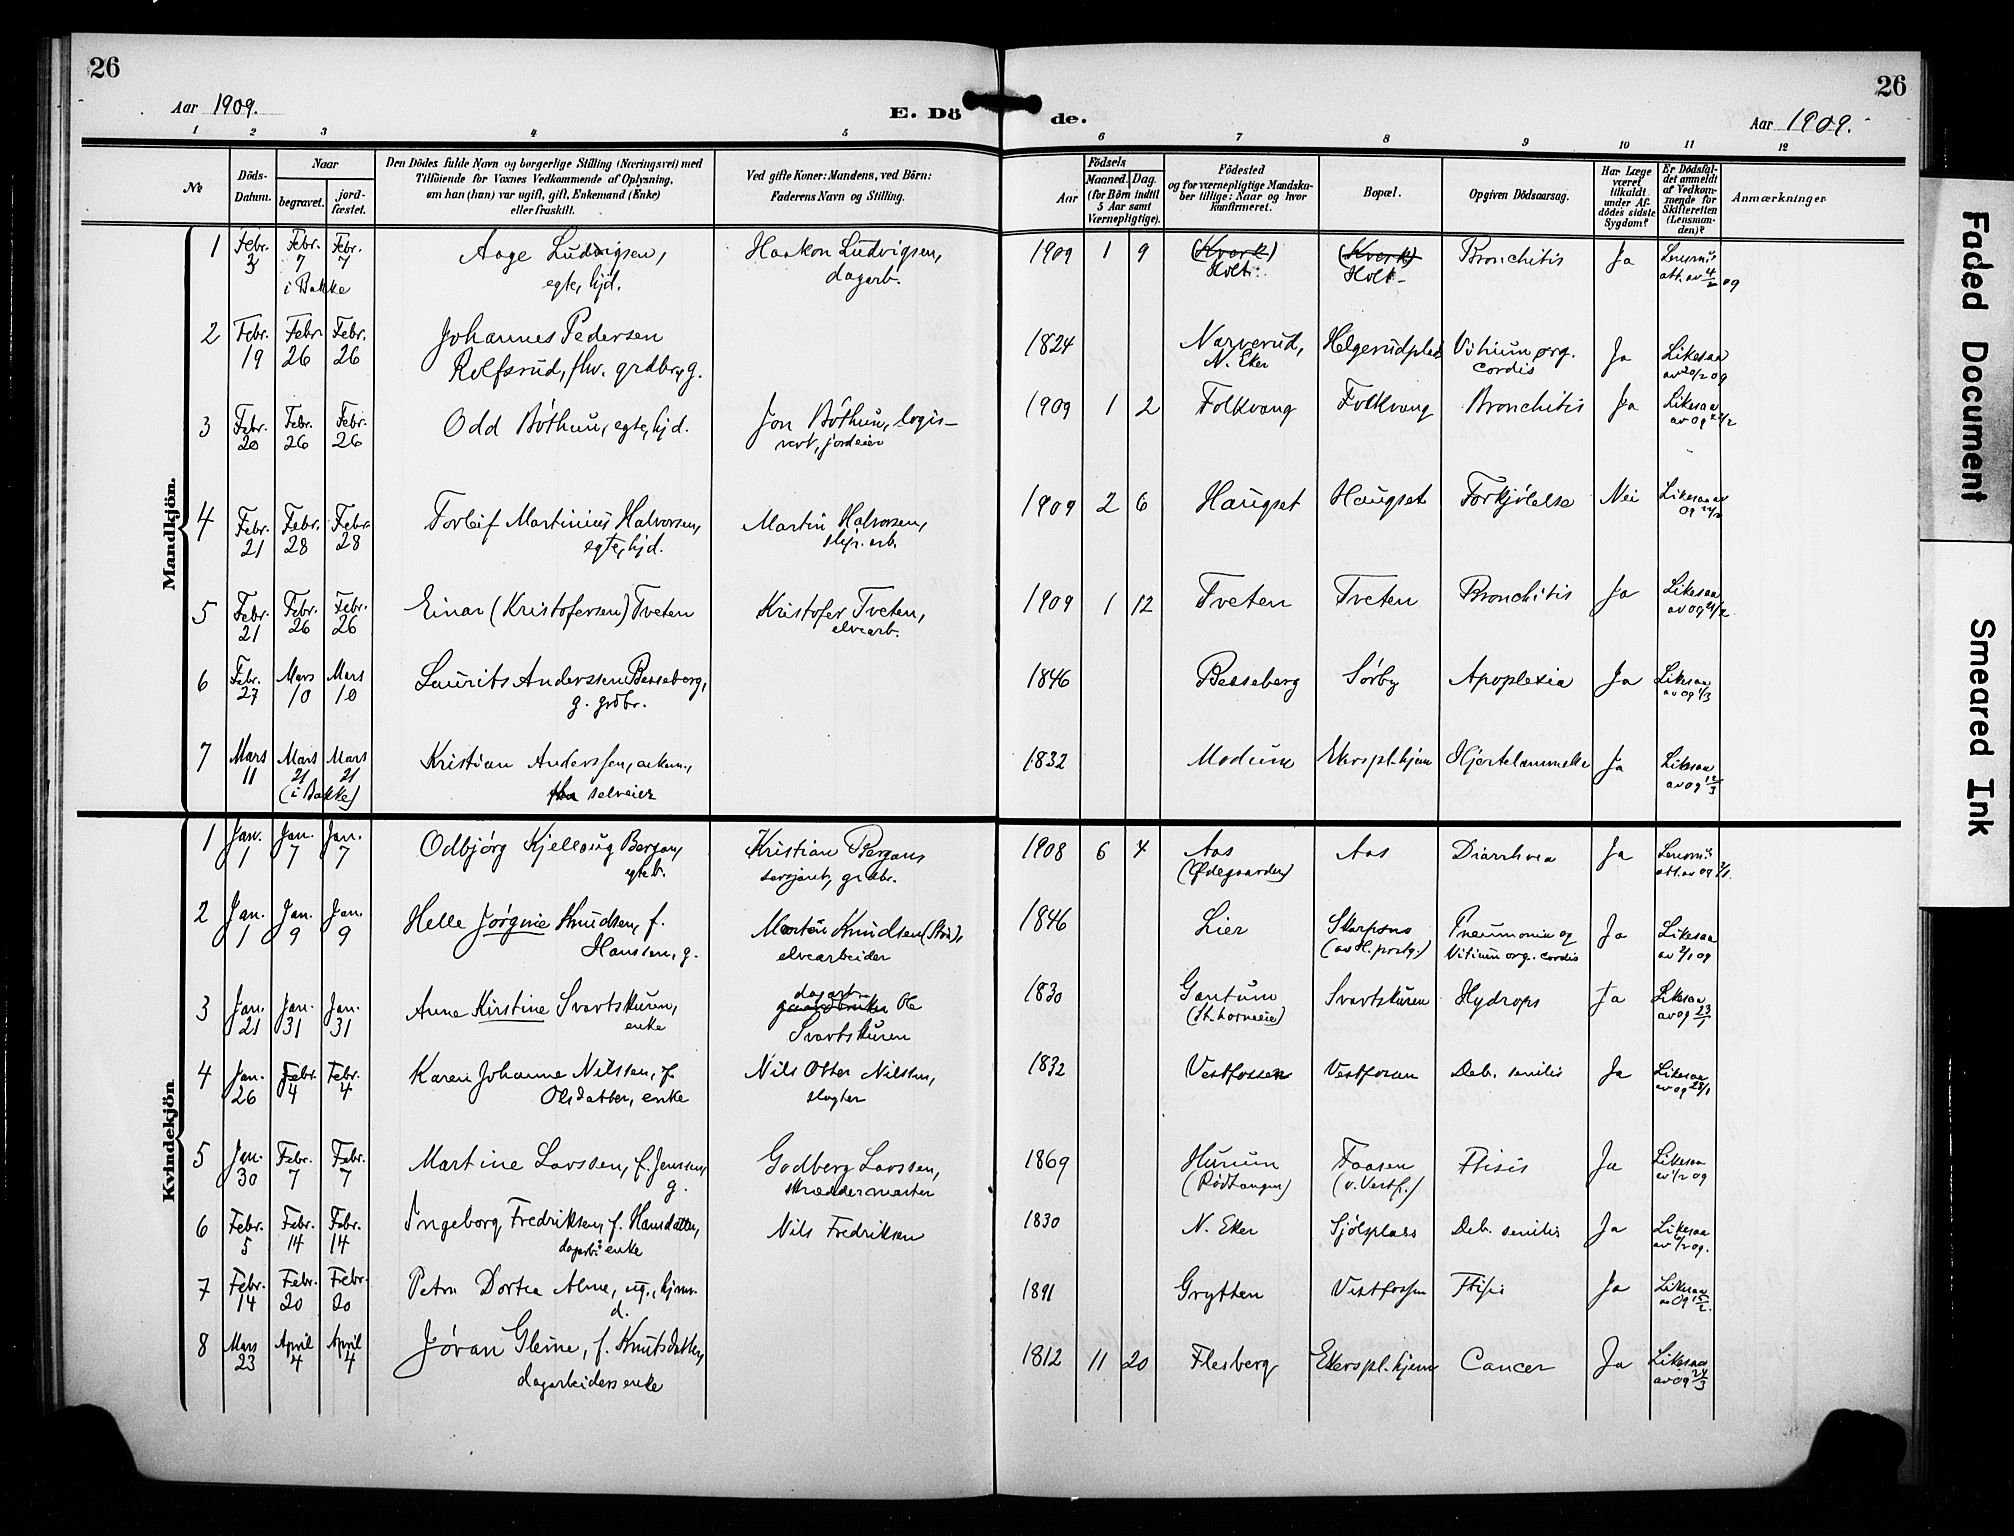 26
26
Aar 1909.
E. Dö
de.
Aar 1909.
1 2 3 4 5 6 7 8 9 10 11 12
№
Döds-
Datum.
Naar
begravet.
jord-
fæstet.
Den Dödes fulde Navn og borgerlige Stilling (Næringsvei) med
Tilföiende for Voxnes Vedkommende af Oplysning,
om han (hun) var ugift, gift, Enkemand (Enke)
eller fraskilt.
Ved gifte Koner: Mandens, ved Börn:
Faderens Navn og Stilling.
Aar
Födsels
Maaned. Dag.
(for Börn indtil
5 Aar samt
Værnepligtige).
Födested
og for værnepligtige Mandska-
ber tillige: Naar og hvor
konfirmeret.
Bopæl.
Opgiven Dödsaarsag.
Har Læge
været
tilkaldt
under Af-
dödes sidste
Sygdom?
Er Dödsfal-
det anmeldt
af Vedkom-
mende for
Skifteretten
(Lensman-
den)?
Anmærkninger
Mandkjön.
1 Febr. 3 Febr. 7 Febr. 7 Aage Ludvigsen, Haakon Ludvigsen, 1909 1 9 (Kverk) (Kverk) Bronchitis Ja Lensm's
i Bakke egte, hjd. dagarb. Holt. Holt att. av 4/2 09
2 Febr. 19 Febr. 26 Febr. 26 Johannes Pedersen 1824 Narverud, Helgerudplads Vitium org. Ja Likesaa
Rolfsrud, fhv. grdbr., g. N. Eker cordis av 20/2 09
3 Febr. 20 Febr. 26 Febr. 26 Odd Bøthun, egte, hjd. Jon Bøthun, logis- 1909 1 2 Folkvang Folkvang Bronchitis Ja Likesaa
vert, jordeier
4 Febr. 21 Febr. 28 Febr. 28 Torleif Martinius Halvorsen, Martin Halvorsen, 1909 2 6 Haugset Haugset Forkjølelse Nei Likesaa av
egte, hjd. slip. arb.
5 Febr. 21 Febr. 26 Febr. 26 Einar (Kristofersen) Tveten Kristofer Tveten, 1909 1 12 Tveten Tveten Bronchitis Ja Likesaa
elvearb.
6 Febr. 27 Mars 10 Mars 10 Laurits Anderssen Besseberg, 1846 Besseberg Sørby Apoplexia Ja Likesaa
g. grdbr. av 09 1/3
7 Mars 11 Mars 21 Mars 21 Kristian Anderssen, enkem., 1832 Modum Ekers pl.hjem Hjertelammelse Ja Likesaa
(i Bakke) selveier av 09 12/3
Kvindekjön
1 Jan. 1 Jan. 7 Jan. 7 Odbjørg Kjellaug Bergan, Kristian Bergan, 1908 6 4 Aas Aas Diarrhoea Ja Lensm's
egteb. sersjant, grdbr. (Ødegaarden) att. av 09 2/1.
2 Jan. 1 Jan. 9 Jan. 9 Helle Jørgine Knudsen, f. Martin Knudsen 1846 Lier Skarpsno Pneumonia og Ja Likesaa
Hanssen, g. elvearbeider Vitium org. cordis av 2/1 09
3 Jan. 21 Jan. 31 Jan. 31 Anne Kirstine Svartskuren, dagarb. 1830 Gontum Svartskuren Hydrops Ja Likesaa
enke gaardbruker Ole av 09 23/1
Svartskuren
4 Jan. 26 Febr. 4 Febr. 4 Karen Johanne Nilssen, f. Nils Otter Nilssen, 1832 Vestfossen Vestfossen Deb. senilis Ja Likesaa
Olsdatter, enke slagter av 09 28/1
5 Jan. 30 Febr. 7 Febr. 7 Martine Larssen, f. Jenssen, Godberg Larssen, 1869 Hurum Faasen Ftisis Ja Likesaa
g. skræddermester (Rødtangen) (v. Vestf.) av 1/2 09
6 Febr. 5 Febr. 14 Febr. 14 Ingeborg Fredriksen, f. Hansdatter, Nils Fredriksen 1830 N. Eker Sjølsplads Deb. senilis Ja Likesaa
dagarb.s enke av 6/2 09.
7 Febr. 14 Febr. 20 Febr. 20 Petra Dortea Alme, ug., hjem. 1891 Grytten Vestfossen Ftisis Ja Likesaa
d. av 09 15/2.
8 Mars 23 April 4 April 4 Jøran Gleine, f. Knutsdatter, 1812 11 20 Flesberg Ekers pl. hjem Cancer Ja Likesaa
dagarbeiders enke av 09 24/3
Faded Document
Smeared Ink